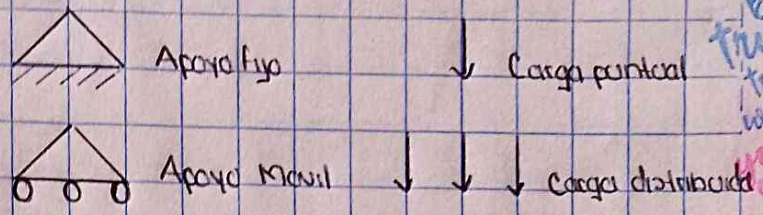 Apoyo fijo
Carga puntual
Apoyo Movil
Carga distribuida